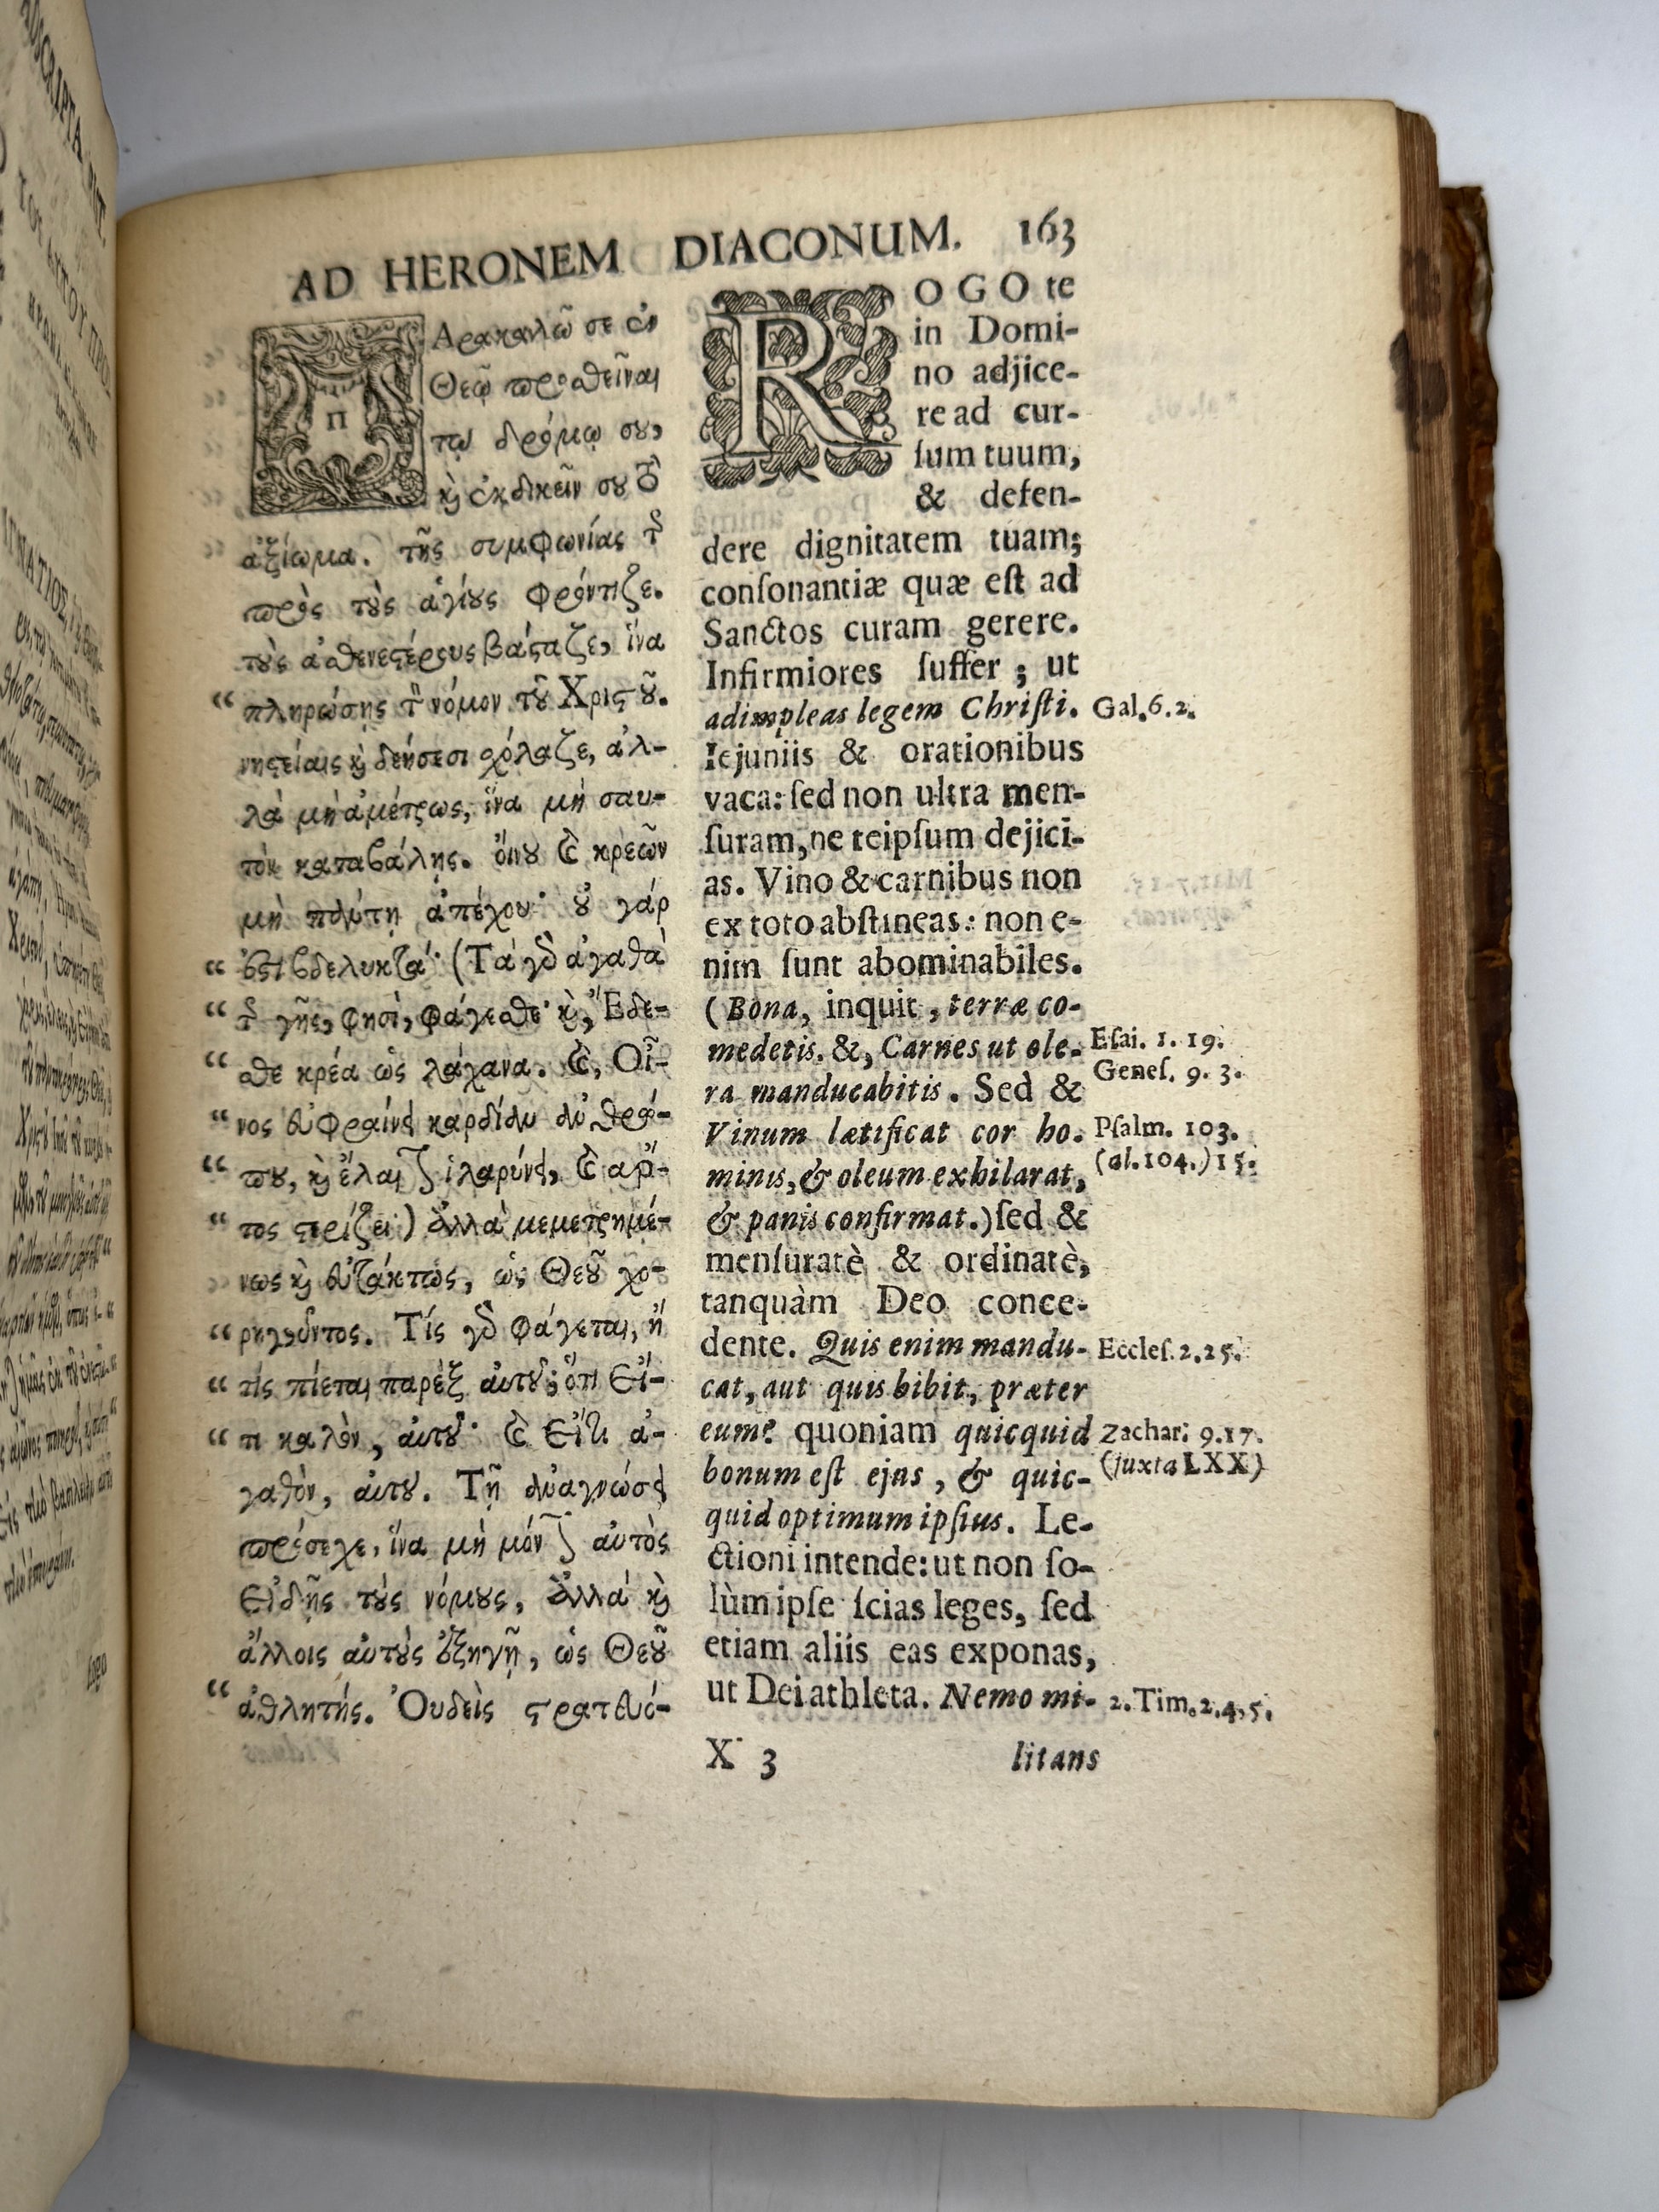 AD HERONEM DIACONUM. 163
ΠΑρακαλῶ σε ἐν
Θεῷ προσθεῖναι
τῷ δρόμῳ σου,
καὶ ἐκδικεῖν σου τὸ
ἀξίωμα. τῆς συμφωνίας τῆς
πρὸς τοὺς ἁγίους φρόντιζε.
τοὺς ἀσθενεστέρους βάσταζε, ἵνα
“ πληρώσῃς τὸν νόμον τοῦ Χριστοῦ.
νηστείαις καὶ δεήσεσι σχόλαζε, ἀλ-
λὰ μὴ ἀμέτρως, ἵνα μὴ σαυ-
τὸν καταβάλῃς. οἴνου καὶ κρεῶν
μὴ πάντη ἀπέχου· οὐ γάρ
“ ἐστι βδελυκτά· (Τὰ γὰρ ἀγαθὰ
“ τῆς γῆς, φησὶ, φάγεσθε· καὶ, Ἔδε-
“ σθε κρέα ὡς λάχανα. καὶ, Οἶ-
“ νος εὐφραίνει καρδίαν ἀνθρώ-
“ που, καὶ ἔλαιον ἱλαρύνει, καὶ ἄρ-
“ τος στρίζει·) ἀλλὰ μεμετρημέ-
νως καὶ εὐτάκτως, ὡς Θεοῦ χο-
“ ρηγοῦντος. Τίς γὰρ φάγεται, ἢ
“ τίς πίεται παρὲξ αὐτοῦ; ὅτι Εἴ-
“ τι καλὸν, αὐτοῦ· καὶ Εἴτι ἀ-
γαθὸν, αὐτοῦ. Τῇ ἀναγνώσει
πρόσεχε, ἵνα μὴ μόνον αὐτὸς
εἰδῇς τοὺς νόμους, ἀλλὰ καὶ
ἄλλοις αὐτοὺς ἐξηγῇ, ὡς Θεοῦ
“ ἀθλητής. Ὀυδεὶς στρατευό-
ROGO te
in Domi-
no adjice-
re ad cur-
ſum tuum,
& defen-
dere dignitatem tuam;
conſonantiæ quæ eſt ad
Sanctos curam gerere.
Infirmiores ſuffer; ut
adimpleas legem Chriſti. Gal. 6. 2.
Iejuniis & orationibus
vaca: ſed non ultra men-
ſuram, ne teipſum dejici-
as. Vino & carnibus non
ex toto abſtineas: non e-
nim ſunt abominabiles.
(Bona, inquit, terræ co-
medetis. &, Carnes ut ole- Eſai. 1. 19.
ra manducabitis. Sed & Geneſ. 9. 3.
Vinum lætificat cor ho- Pſalm. 103.
minis, & oleum exhilarat, (al. 104.) 15.
& panis confirmat.) ſed &
menſuratè & ordinatè,
tanquàm Deo conce-
dente. Quis enim mandu- Eccleſ. 2. 25.
cat, aut quis bibit, præter
eum? quoniam quicquid Zachar. 9. 17.
bonum eſt ejus, & quic- (juxta LXX)
quid optimum ipſius. Le-
ctioni intende: ut non ſo-
lùm ipſe ſcias leges, ſed
etiam aliis eas exponas,
ut Dei athleta. Nemo mi- 2. Tim. 2. 4, 5.
X 3 litans